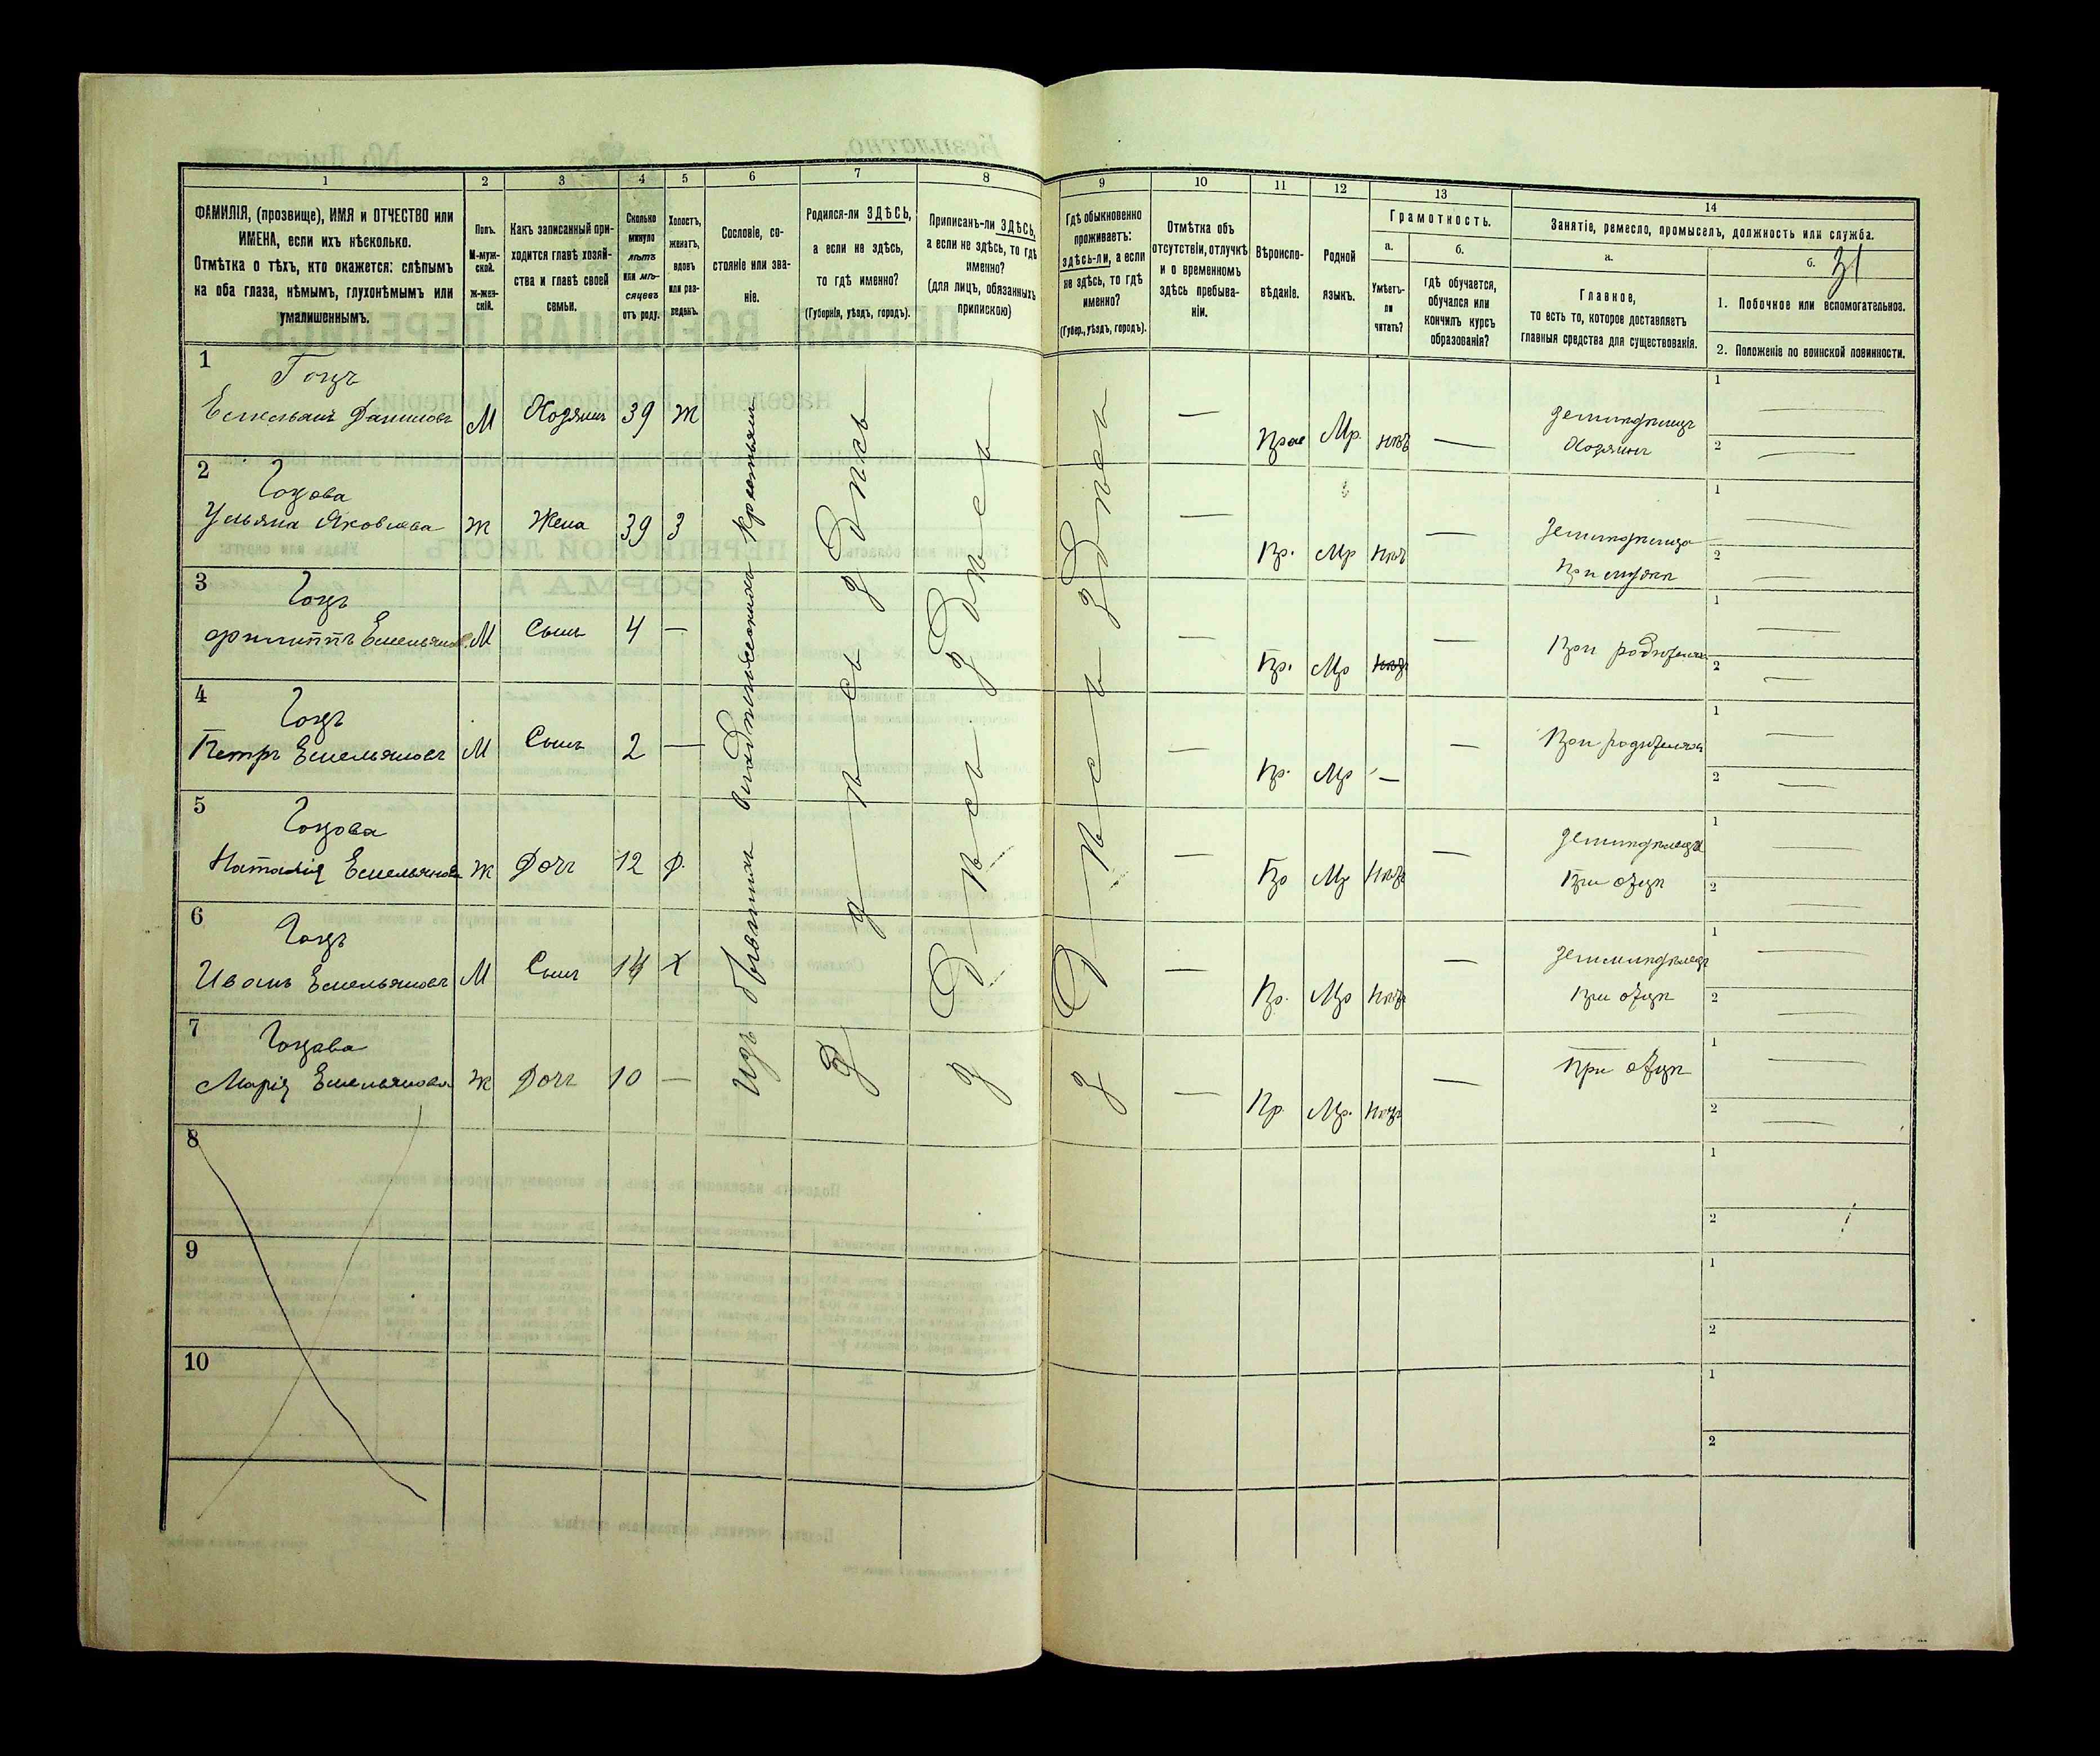 1 2 3 4 5 6 7 8 9 10 11 12 13 14
ФАМИЛІЯ, (прозвище), ИМЯ и ОТЧЕСТВО или
ИМЕНА, если ихъ нѣсколько.
Отмѣтка о тѣхъ, кто окажется: слѣпымъ
на оба глаза, нѣмымъ, глухонѣмымъ или
умалишеннымъ.
Полъ.
М-муж-
ской.
Ж-жен-
скій.
Какъ записанный при-
ходится главѣ хозяй-
ства и главѣ своей
семьи.
Сколько
минуло
лѣтъ
или мѣ-
сяцевъ
отъ роду.
Холостъ,
женатъ,
вдовъ
или раз-
веденъ.
Сословіе, со-
стояніе или зва-
ніе.
Родился-ли ЗДѢСЬ,
а если не здѣсь,
то гдѣ именно?
(Губернія, уѣздъ, городъ).
Приписанъ-ли ЗДѢСЬ,
а если не здѣсь, то гдѣ
именно?
(для лицъ, обязанныхъ
припискою)
Гдѣ обыкновенно
проживаетъ:
здѣсь-ли, а если
не здѣсь, то гдѣ
именно?
(Губер., уѣздъ, городъ).
Отмѣтка объ
отсутствіи, отлучкѣ
и о временномъ
здѣсь пребыва-
ніи.
Вѣроиспо-
вѣданіе.
Родной
языкъ.
Грамотность.
а.
Умѣетъ-
ли
читать?
б.
Гдѣ обучается,
обучался или
кончилъ курсъ
образованія?
Занятіе, ремесло, промыселъ, должность или служба.
а.
Главное,
то есть то, которое доставляетъ
главныя средства для существованія.
б. 31
1. Побочное или вспомогательное.
2. Положеніе по воинской повинности.
Изъ бывшихъ владѣльческихъ крестьянъ
здѣсь
здѣсь
здѣсь
1
Гоцъ
Емельянъ Даниловъ М Хозяинъ 39 Ж — Прав Мр. нѣтъ — земледѣлецъ
Хозяинъ
1 —
2 —
2
Гоцова
Ульяна Яковлева Ж Жена 39 З — Пр. Мр нѣтъ —
При мужѣ
1 —
2 —
3
Гоцъ
Филиппъ Емельянов. М Сынъ 4 — — Пр. Мр нѣтъ — При родителяхъ
1 —
2 —
4
Гоцъ
Петръ Емельяновъ М Сынъ 2 — — Пр. Мр — — При родителяхъ
1 —
2 —
5
Гоцова
Наталія Емельянова Ж Дочь 12 Д. — Пр Мр нѣтъ —
При отцѣ
1 —
2 —
6
Гоцъ
Иванъ Емельяновъ М Сынъ 14 Х — Пр. Мр нѣтъ — земледѣлецъ
При отцѣ
1 —
2 —
7
Гоцова
Марія Емельянова Ж Дочь 10 — — Пр. Мр. нѣтъ — При отцѣ
1 —
2 —
8
1
2
9
1
2
10
1
2